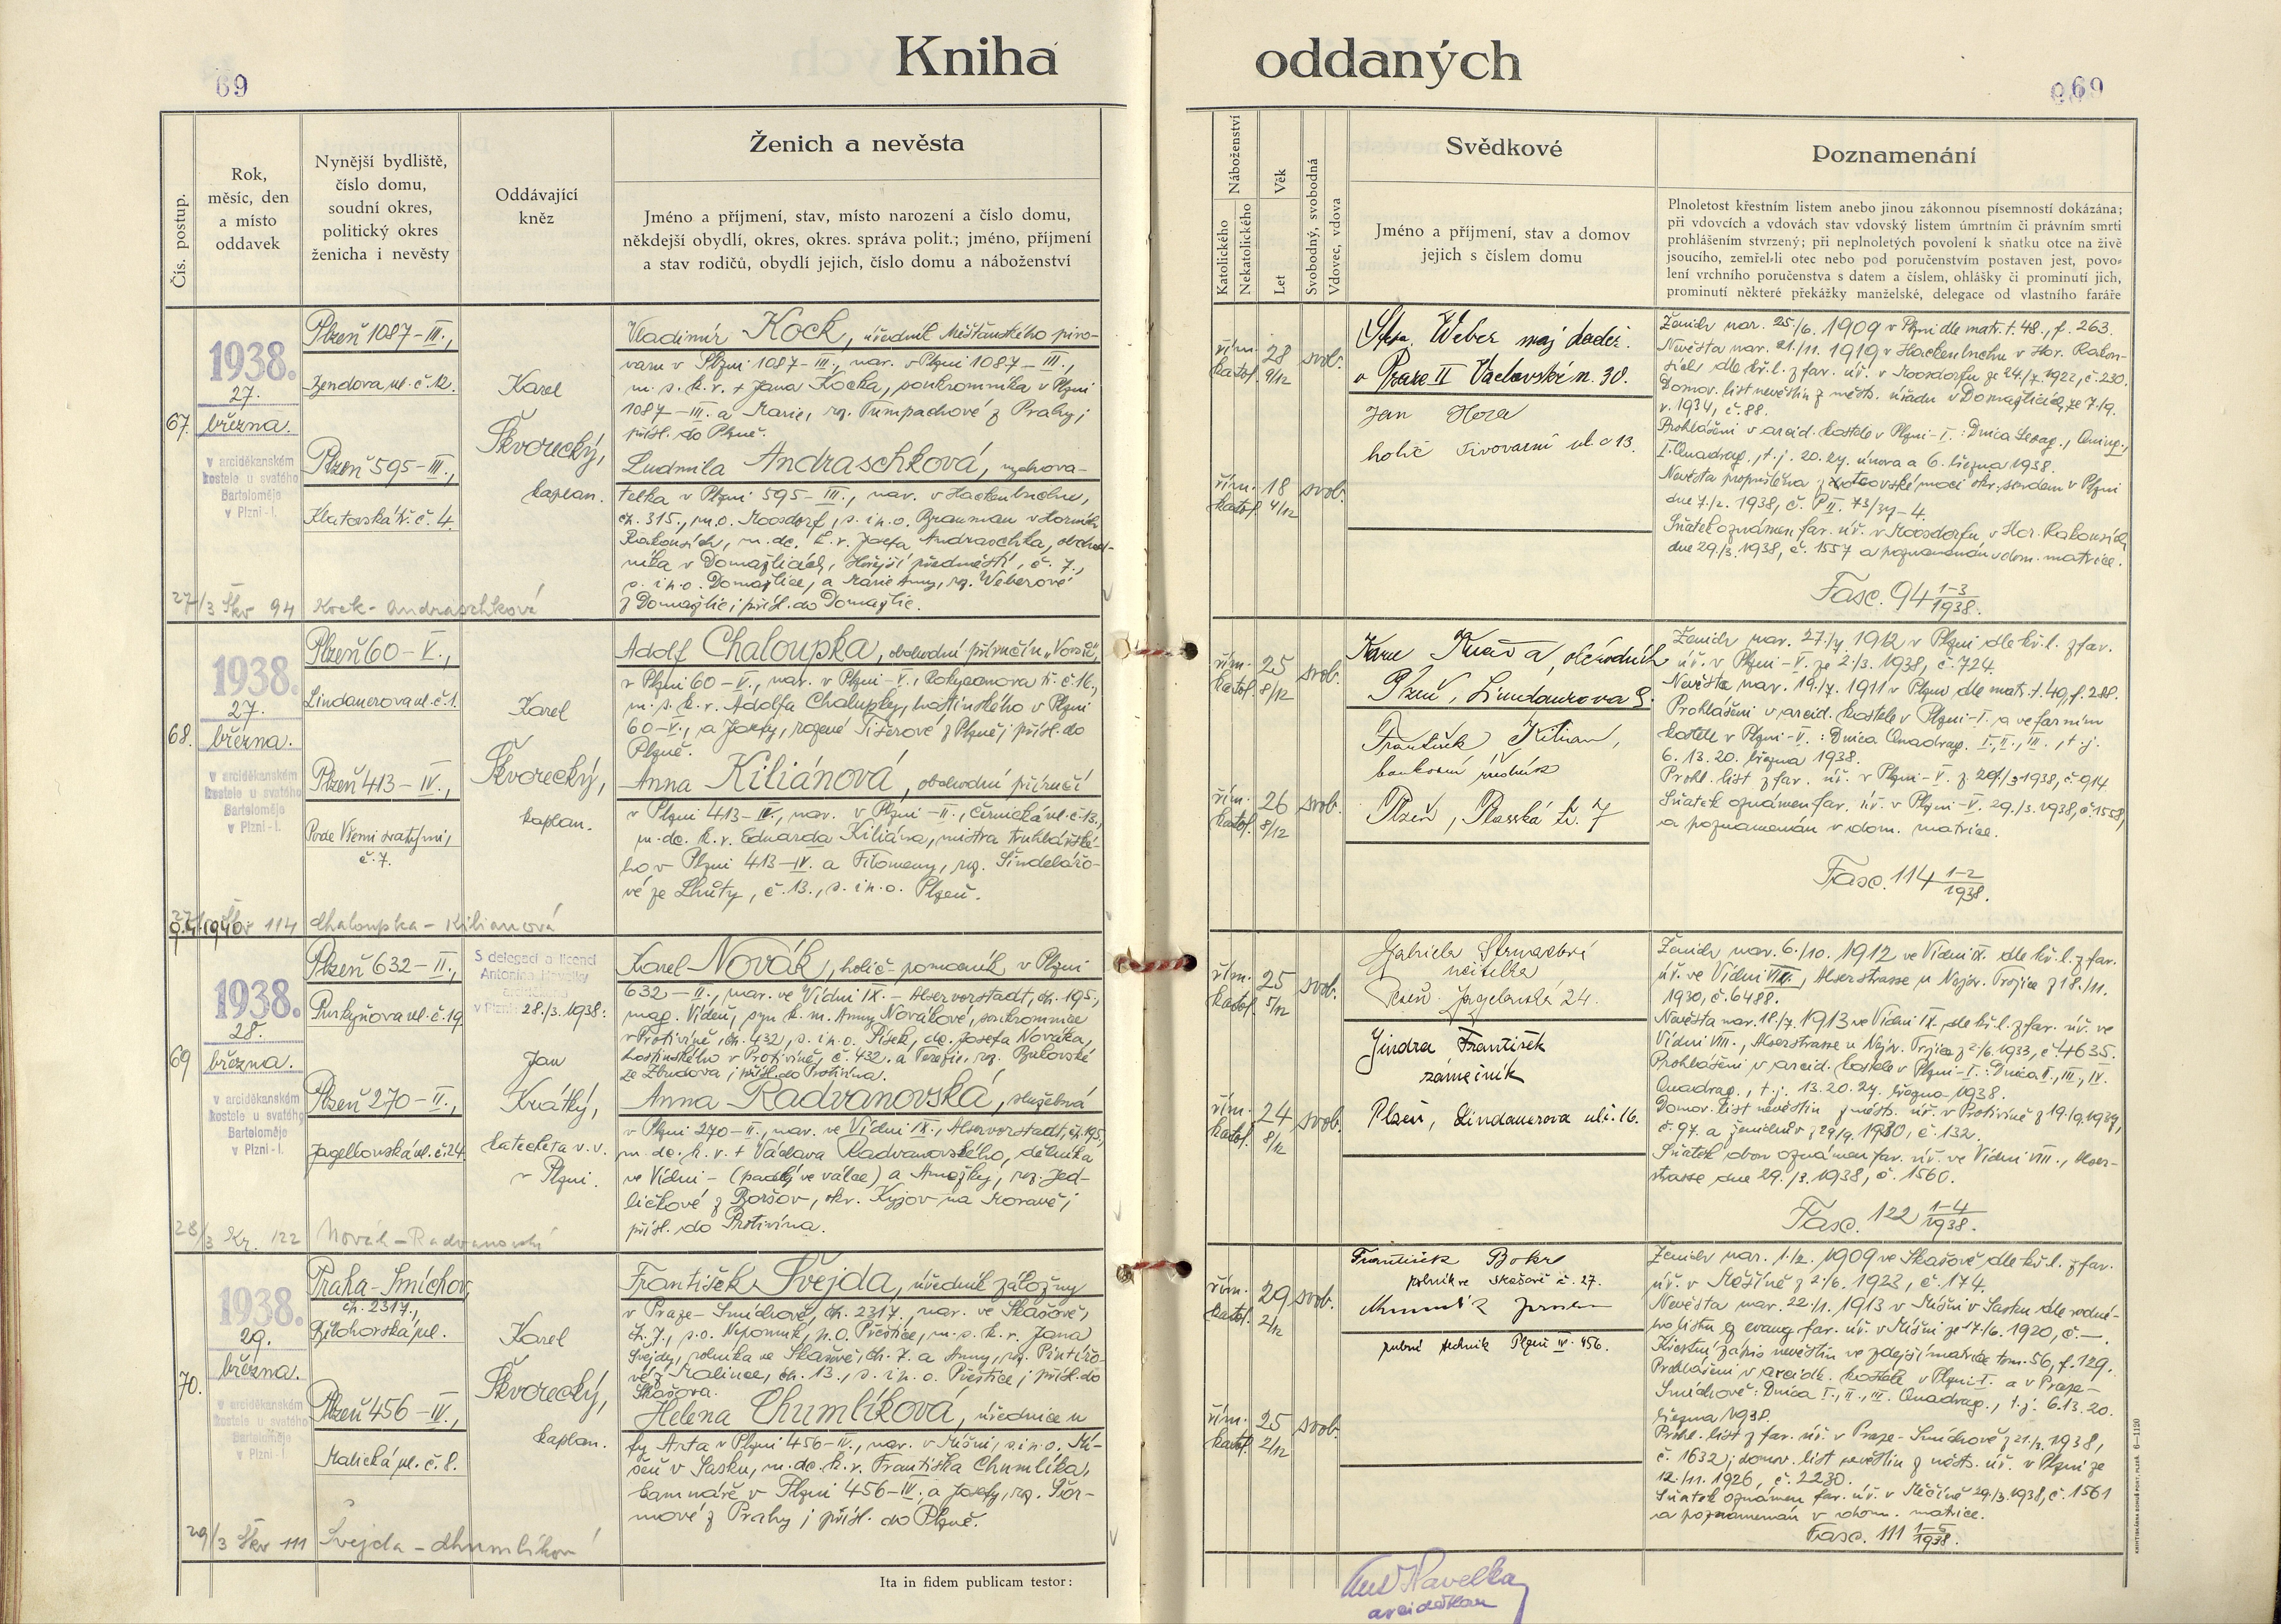 Kniha oddaných
69
69
Čís. postup.
Rok,
měsíc, den
a místo
oddavek
Nynější bydliště,
číslo domu,
soudní okres,
politický okres
ženicha i nevěsty
Oddávající
kněz
Ženich a nevěsta
Jméno a příjmení, stav, místo narození a číslo domu,
někdejší obydlí, okres, okres. správa polit.; jméno, příjmení
a stav rodičů, obydlí jejich, číslo domu a náboženství
Náboženství
Katolického
Nekatolického
Věk
Let
Svobodný, svobodná
Vdovec, vdova
Svědkové
Jméno a příjmení, stav a domov
jejich s číslem domu
Poznamenání
Plnoletost křestním listem anebo jinou zákonnou písemností dokázána;
při vdovcích a vdovách stav vdovský listem úmrtním či právním smrti
prohlášením stvrzený; při neplnoletých povolení k sňatku otce na živě
jsoucího, zemřel-li otec nebo pod poručenstvím postaven jest, povo-
lení vrchního poručenstva s datem a číslem, ohlášky či prominutí jich,
prominutí některé překážky manželské, delegace od vlastního faráře
67.
1938.
27.
března.
v arciděkanském
kostele u svatého
Bartoloměje
v Plzni-I.
Plzeň 1087-III.,
Zendova ul. č. 12.
Plzeň 595-III.,
Klatovská tř. č. 4.
Karel
Škvorecký,
kaplan.
Vladimír Kock, úředník Měšťanského pivo-
varu v Plzni 1087-III., nar. v Plzni 1087-III.,
m. s. k. v. + Jana Kocka, soukromníka v Plzni
1087-III. a Marie, roz. Tumpachové z Prahy;
přísl. do Plzně.
Ludmila Andraschková, vychova-
telka v Plzni 595-III., nar. v Hackenbuchu,
čp. 315., p. o. Moosdorf, s. i p. o. Braunau v Horních
Rakousích, m. dc. k. v. Josefa Andraschka, obchod-
níka v Domažlicích, Hořejší předměstí, č. 7.,
s. i p. o. Domažlice, a Marie Anny, roz. Weberové
z Domažlic; přísl. do Domažlic.
27/3 Škv 94 Kock - Andraschková
řím.
katol.
28
9/12
svob.
řím.
katol.
18
4/12
svob.
Weber maj. dodav.
v Praze II Václavské n. 30.
Jan Hora
holič Pivovarní ul. č 13.
Ženich nar. 25./6. 1909 v Plzni dle matr. t. 48., f. 263.
Nevěsta nar. 21./11. 1919 v Hackenbuchu v Hor. Rakou-
sích dle kř. l. z far. úř. v Moosdorfu ze 24./7. 1922, č. 230.
Domov. list nevěstin z městs. úřadu v Domažlicích ze 7./9.
r. 1934, č. 88.
Prohlášeni v arcid. kostele v Plzni-I.: Dnica Sexag., Quinq.,
I. Quadrag., t. j. 20. 27. února a 6. března 1938.
Nevěsta propuštěna z otcovské moci okr. soudem v Plzni
dne 7./2. 1938, č. P II. 73/37-4.
Sňatek oznámen far. úř. v Moosdorfu v Hor. Rakousích
dne 29./3. 1938, č. 1557 a poznamenán v dom. matrice.
Fasc. 94 1-3/1938.
68.
1938.
27.
března.
v arciděkanském
kostele u svatého
Bartoloměje
v Plzni-I.
Plzeň 60-V.,
Lindauerova ul. č. 1.
Plzeň 413-IV.,
Pode Všemi svatými,
č. 7.
Karel
Škvorecký,
kaplan.
Adolf Chaloupka, obchodní příručí u
v Plzni 60-V., nar. v Plzni-V., Rokycanova tř. č. 16.,
m. s. k. v. Adolfa Chaloupky, hostinského v Plzni
60-V., a Josefy, rozené Tišerové z Plzně; přísl. do
Plzně.
Anna Kiliánová, obchodní příručí
v Plzni 413-IV., nar. v Plzni-II., Černická ul. č. 13.,
m. dc. k. v. Eduarda Kiliána, mistra truhlářské-
ho v Plzni 413-IV. a Filomeny, roz. Šindelářo-
vé ze Lhůty, č. 13., s. i p. o. Plzeň.
Škv 114 Chaloupka - Kilianová
řím.
katol.
25
8/12
svob.
řím.
katol.
26
8/12
svob.
obchodník
Plzeň, Lindauerova
František Kilian,
bankovní úředník
Plzeň, Plasská tř. 7
Ženich nar. 27./7. 1912 v Plzni dle kř. l. z far.
úř. v Plzni-V. ze 2./3. 1938, č. 724.
Nevěsta nar. 19./7. 1911 v Plzni dle matr. t. 49, f. 288.
Prohlášeni v arcid. kostele v Plzni-I. a ve farním
kostele v Plzni-V.: Dnica Quadrag. I., II., III., t. j.
6. 13. 20. března 1938.
Prohl. list z far. úř. v Plzni-V. z 20./3. 1938, č. 914
Sňatek oznámen far. úř. v Plzni-V. 29./3. 1938, č. 1558,
a poznamenán v dom. matrice.
Fasc. 114 1-2/1938.
69
1938.
28.
března.
v arciděkanském
kostele u svatého
Bartoloměje
v Plzni-I.
Plzeň 632-II.,
Purkyňova ul. č. 19
Plzeň 270-II.,
Jagellonská ul. č. 24.
S delegací a licencí
Antonína Havelky
arciděkana
v Plzni 28./3. 1938.
Jan
Krátký,
katecheta v. v.
v Plzni.
Karel Novák, holič-pomocník v Plzni
632-II., nar. ve Vídni IX.-Alservorstadt, čp. 195.,
mag. Vídeň, syn k. m. Anny Novákové, soukromnice
v Protivíně, čp. 432, s. i p. o. Písek, dc. Josefa Nováka,
hostinského v Protivíně, č. 432. a Terezie, roz. Bukovské
ze Zbudova; přísl. do Protivína.
Anna Radvanovská, služebná
v Plzni 270-II., nar. ve Vídni IX., Alservorstadt, čp. 195,
m. dc. k. v. + Václava Radvanovského, dělníka
ve Vídni - (padlý ve válce) a Anežky, roz. Jed-
ličkové z Boršov, okr. Kyjov na Moravě;
přísl. do Protivína.
28/3 Kr. 122 Novák - Radvanovská
řím.
katol.
25
5/12
svob.
řím.
katol.
24
8/12
svob.
Gabriela
učitelka
Plzeň Jagellonská 24.
Jindra František
zámečník
Plzeň, Lindauerova ul. č. 16.
Ženich nar. 6./10. 1912 ve Vídni IX. dle kř. l. z far.
úř. ve Vídni VIII., Alserstrasse u Nejsv. Trojice z 18./11.
1930, č. 6488.
Nevěsta nar. 18./7. 1913 ve Vídni IX. dle kř. l. z far. úř. ve
Vídni VIII., Alserstrasse u Nejsv. Trojice z 2./6. 1933, č. 4635.
Prohlášeni v arcid. kostele v Plzni-I.: Dnica II., III., IV.
Quadrag., t. j. 13. 20. 27. března 1938.
Domov. list nevěstin z městs. úř. v Protivíně z 19./9. 1937,
č. 97. a ženichův z 29/9. 1930, č. 132.
Sňatek obou oznámen far. úř. ve Vídni VIII., Alser-
strasse dne 29./3. 1938, č. 1560.
Fasc. 122 1-4/1938.
70.
1938.
29.
března.
v arciděkanském
kostele u svatého
Bartoloměje
v Plzni-I.
Praha-Smíchov,
čp. 2317.,
Bělohorská ul.
Plzeň 456-IV.,
Malická ul. č. 8.
Karel
Škvorecký,
kaplan.
František Švejda, úředník záložny
v Praze-Smíchově, čp. 2317., nar. ve Skašově,
čp. 7., s. o. Nepomuk, p. o. Přeštice, m. s. k. v. Jana
Švejdy, rolníka ve Skašově, čp. 7. a Anny, roz. Pintířo-
vé z Kalince, čp. 13., s. i p. o. Přeštice; přísl. do
Skašova.
Helena Chumlíková, úřednice u
fy Asta v Plzni 456-IV., nar. v Míšni, s. i p. o. Mí-
šeň v Sasku, m. dc. k. v. Františka Chumlíka,
kamnáře v Plzni 456-IV. a Josefy, roz. Šor-
mové z Prahy; přísl. do Plzně.
29/3 Škv 111 Švejda - Chumlíková
řím.
katol.
29
2/12
svob.
řím.
katol.
25
2/12
svob.
František
rolník ve Skašově č. 27.
Plzeň IV. 456.
Ženich nar. 1./2. 1909 ve Skašově dle kř. l. z far.
úř. v Měčíně z 2./6. 1923, č. 174.
Nevěsta nar. 22./1. 1913 v Míšni v Sasku dle rodné-
ho listu ev. far. úř. v Míšni ze 17./6. 1920, č. —.
Křestní zápis nevěstin ve zdejší matrice tom. 56, f. 129.
Prohlášeni v arcidk. kostele v Plzni-I. a v Praze-
Smíchově: Dnica I., II., III. Quadrag., t. j. 6. 13. 20.
března 1938.
Prohl. list z far. úř. v Praze-Smíchově z 21./3. 1938,
č. 1632; domov. list nevěstin z městs. úř. v Plzni ze
12./11. 1926, č. 2230.
Sňatek oznámen far. úř. v Měčíně 29./3. 1938, č. 1561
a poznamenán v dom. matrice.
Fasc. 111 1-5/1938.
Ita in fidem publicam testor:
Ant. Havelka
arciděkan